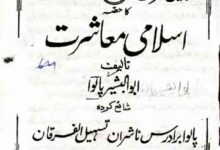 کا حصّہ
اسلامی معاشرت
تالیف
ابوالبشیر پالوا
شائع کردہ
پالوا برادرس ناشران تسہیل الفرقان